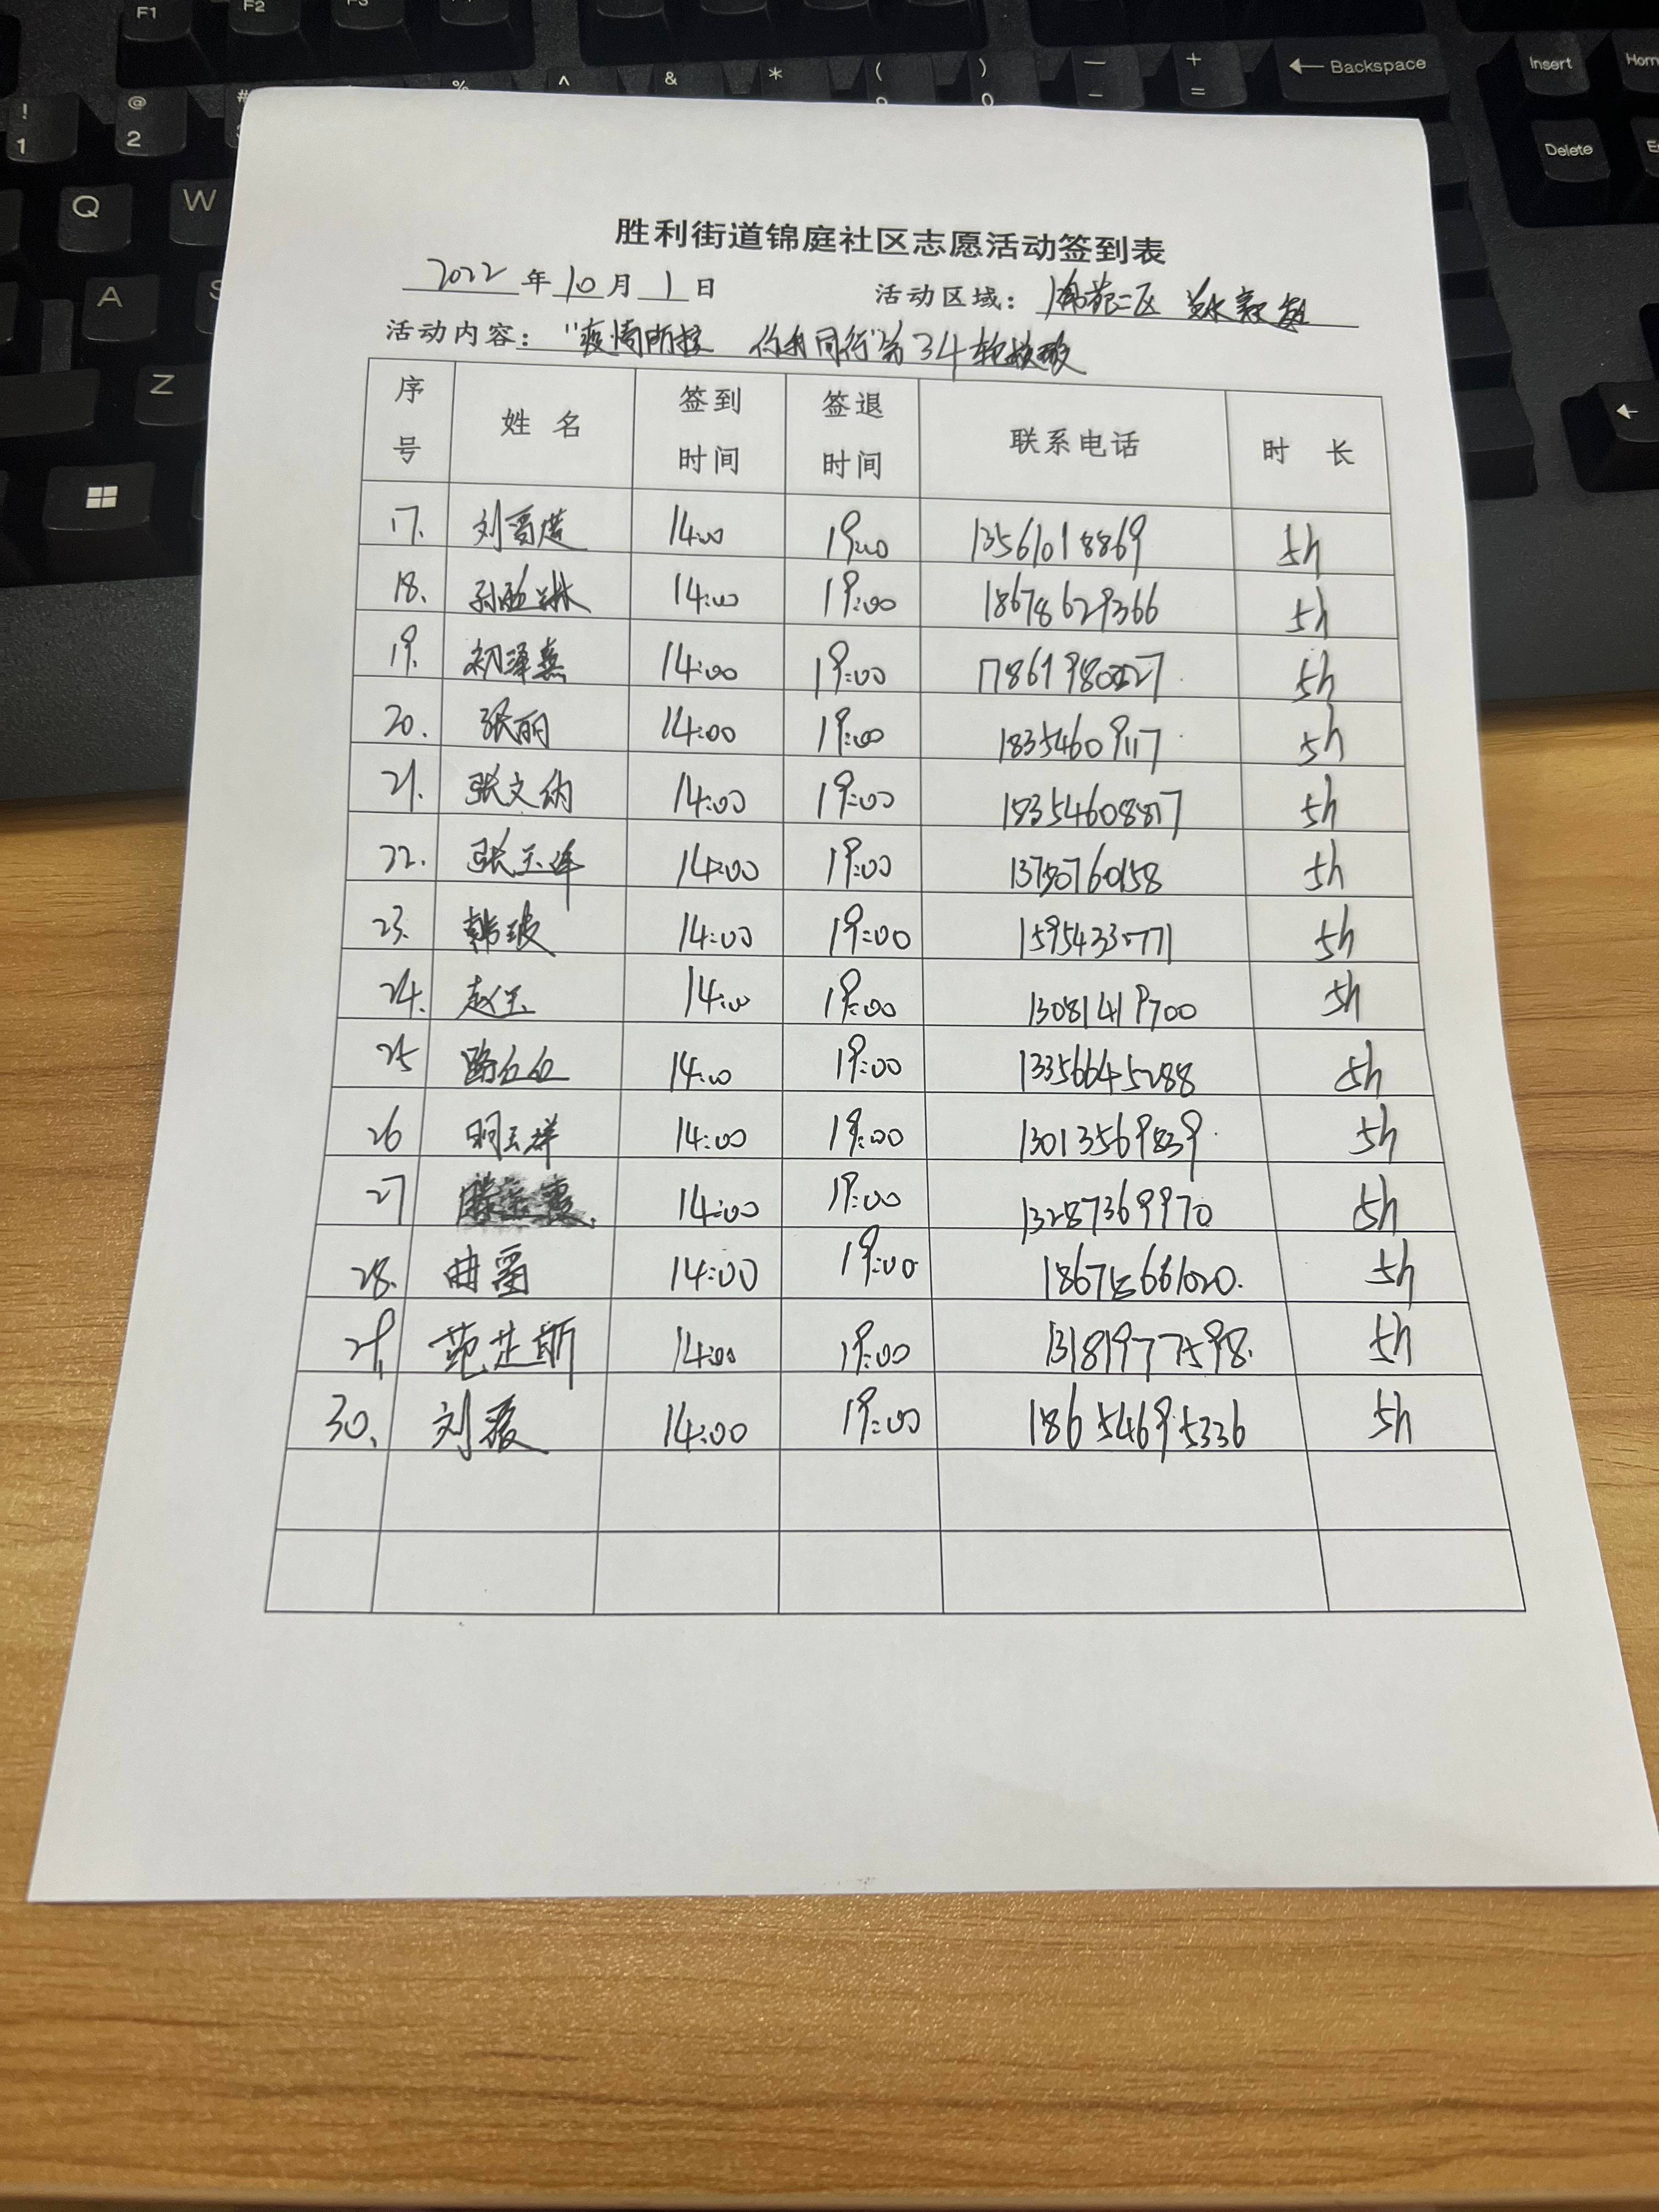 F1
F2
F3
!
1
@
2
#
%
^
&
*
(
)
0
—
-
+
=
← Backspace
Insert
Hom
Delete
Q
W
A
S
Z
胜利街道锦庭社区志愿活动签到表
2022 年 10 月 1 日 活动区域: 二区
活动内容: "疫情防控 你我同行"第34轮核酸
序号 姓 名 签到时间 签退时间 联系电话 时 长
17. 刘 14:00 19:00 13561018869 5h
18. 孙 14:00 19:00 18678629366 5h
19. 初泽熹 14:00 19:00 5h
20. 张丽 14:00 19:00 18354609117 5h
21. 张文纳 14:00 19:00 18354608817 5h
22. 张玉 14:00 19:00 5h
23. 韩玻 14:00 19:00 15954330771 5h
24. 赵玉 14:00 19:00 13081419700 5h
25 路 14:00 19:00 13356645288 5h
26 明玉群 14:00 19:00 13013569839 5h
27 14:00 19:00 13287369970 5h
28. 曲 14:00 19:00 5h
29. 范 14:00 19:00 13181977598 5h
30. 刘 14:00 19:00 18654695336 5h